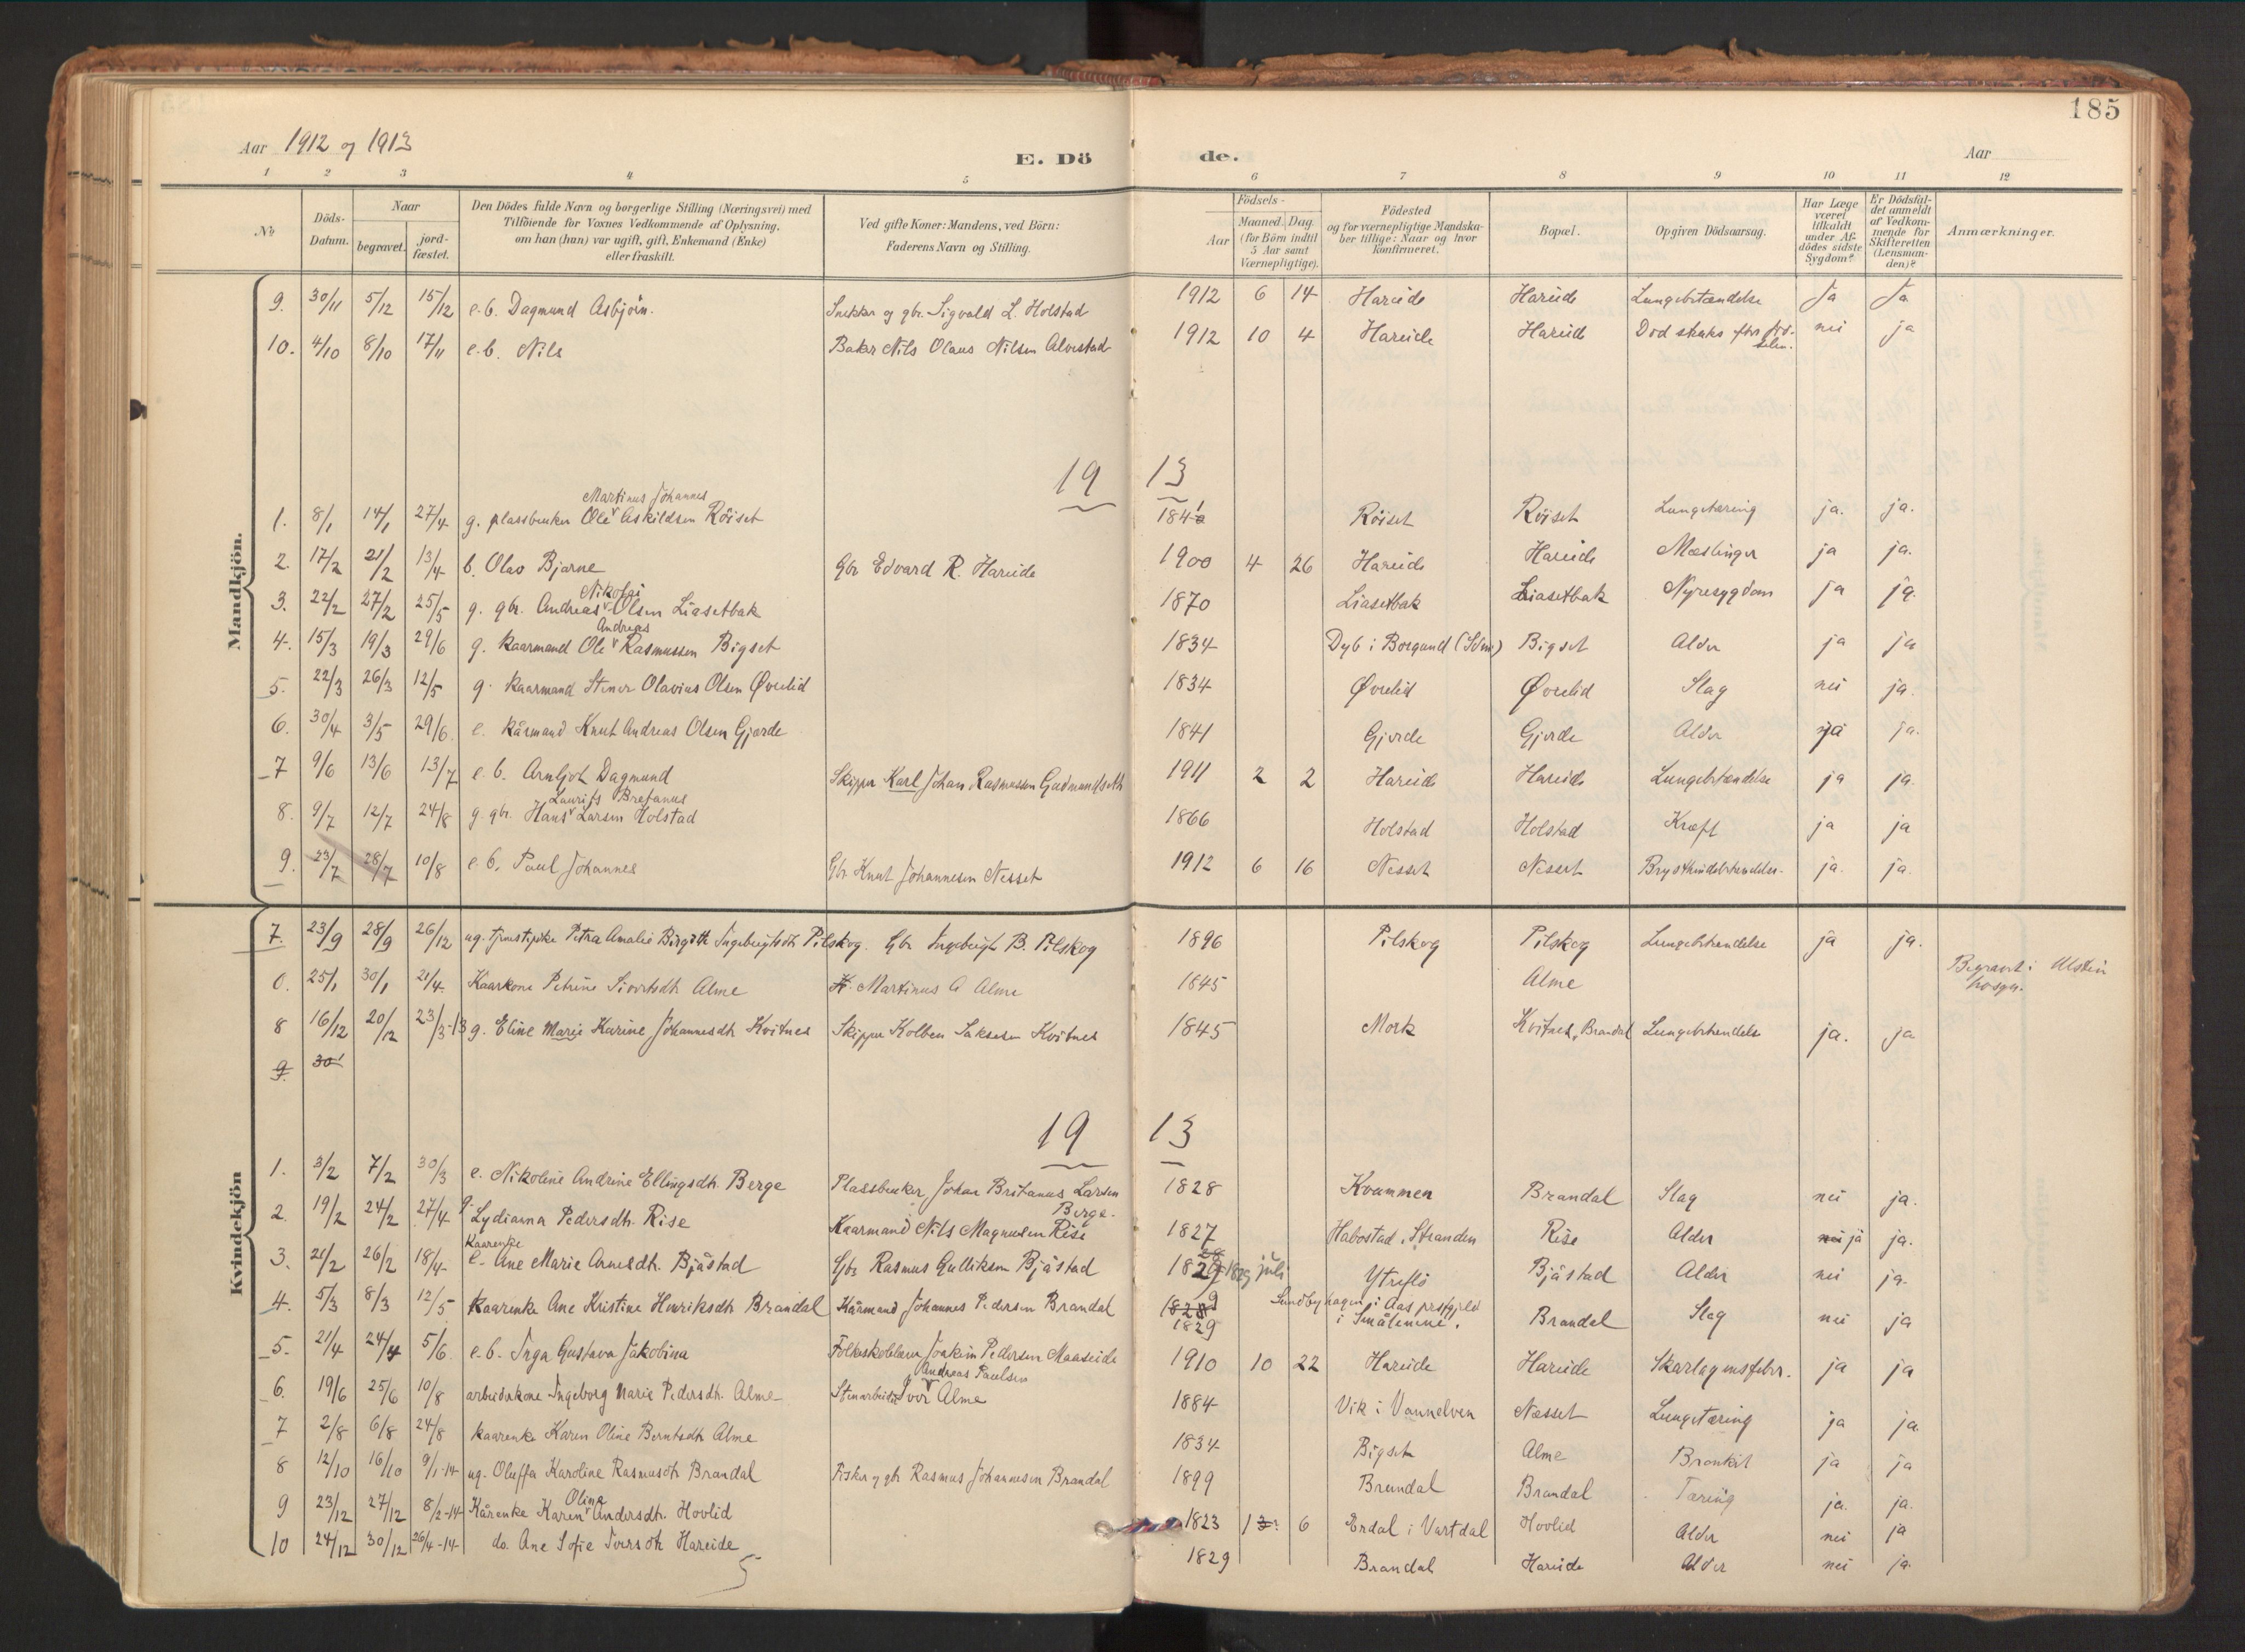 185
Aar 1912 og 1913
E. Döde.
Aar
1 2 3 4 5 6 7 8 9 10 11 12
№
Döds-Datum.
Naar
begravet.
jord-fæstet.
Den Dödes fulde Navn og borgerlige Stilling (Næringsvei) med
Tilföiende for Voxnes Vedkommende af Oplysning,
om han (hun) var ugift, gift, Enkemand (Enke)
eller fraskilt.
Ved gifte Koner: Mandens, ved Börn:
Faderens Navn og Stilling.
Födsels-
Aar
Maaned. Dag.
(for Börn indtil
5 Aar samt
Værnepligtige).
Födested
og for værnepligtige Mandska-
ber tillige: Naar og hvor
konfirmeret.
Bopæl.
Opgiven Dödsaarsag.
Har Læge
været
tilkaldt
under Af-
dödes sidste
Sygdom?
Er Dödsfal-
det anmeldt
af Vedkom-
mende for
Skifteretten
(Lensman-
den)?
Anmærkninger.
Mandkjön.
9. 30/11 5/12 15/12 e.b. Dagmund Asbjørn. Snekker og gbr. Sigvald L. Holstad 1912 6 14 Hareide Hareide Lungebetændelse Ja Ja
10. 4/10 8/10 17/11 e.b. Nils Baker Nils Olaus Nilsen Alvestad 1912 10 4 Hareide Hareide Död straks efter föd-selen. nei ja
1913
1. 8/1 14/1 27/4 g. plassbruker Ole Martinus Johannes Askildsen Röiset 1841 Röiset Röiset Lungetæring ja. ja.
2. 17/2 21/2 13/4 b. Olav Bjarne Gbr Edvard R. Hareide 1900 4 26 Hareide Hareide Mæslinger ja ja.
3. 22/2 27/2 25/5 g. gbr. Andreas Nikolai Olsen Liasetbak 1870 Liasetbak Liasetbak Nyresygdom ja ja.
4. 15/3 19/3 29/6 g. kaarmand Ole Andreas Rasmussen Bigset 1834 Dyb i Borgund (Sdm) Bigset Alder ja ja
5. 22/3 26/3 12/5 g. kaarmand Stener Olavius Olsen Øvrelid 1834 Øvrelid Øvrelid Slag nei ja.
6. 30/4 3/5 29/6 e. kårmand Knut Andreas Olsen Gjærde 1841 Gjerde Gjerde Alder ja ja.
7 9/6 13/6 13/7 e.b. Arnljot Dagmund Skipper Karl Johan Rasmussen Gudmundseth 1911 2 2 Hareide Hareide Lungebetændelse ja ja.
8. 9/7 12/7 24/8 g. gbr. Hans Laurits Brefanus Larsen Holstad 1866 Holstad Holstad Kræft ja ja
9. 23/7 28/7 10/8 e.b. Paul Johannes Gbr Knut Johannesen Nesset 1912 6 16 Nesset Nesset Brysthindebetændelse. ja. ja.
Kvindekjön
7. 23/9 28/9 26/12 ug. tjenestepike Petra Amalie Birgitte Ingebrigtsdtr Pilskog. Gbr Ingebrigt B. Pilskog 1896 Pilskog Pilskog Lungebetændelse ja ja.
0. 25/1 30/1 21/4 Kaarkone Petrine Sivertsdtr Alme K. Martinus A Alme 1845 Alme Begravet i Ulstein hovsogn.
8 16/12 20/12 23/3-13 g. Eline Marie Karine Johannesdtr Kvitnes Skipper Kolben Saksesen Kvitnes 1845 Mork Kvitnes, Brandal Lungebetændelse ja. ja
9. 30/
1913
1. 3/2 7/2 30/3 e. Nikoline Andrine Ellingsdtr. Berge Plassbruker Johan Britanus Larsen Berge. 1828 Kvammen Brandal Slag nei ja.
2. 19/2 24/2 27/4 g. Lydianna Pedersdtr. Rise Kaarmand Nils Magnussen Rise 1827 Habostad, Stranden Rise Alder nei ja ja.
3. 21/2 26/2 18/4 Kaarenke e. Ane Marie Arnesdtr. Bjåstad Gbr Rasmus Gulliksen Bjåstad 1829 28 1829 juli Ytreflö Bjåstad Alder nei ja.
4. 5/3 8/3 12/5 kaarenke Ane Kristine Henriksdtr Brandal Kårmand Johannes Pedersen Brandal 1828 9 1829 Sundbyhagen i Aas prstgjeld i Smålenene. Brandal Slag nei ja
5. 21/4 24/4 5/6 e.b. Inga Gustava Jakobina Folkeskolelærer Joakim Pedersen Maaseide 1910 10 22 Hareide Hareide Skarlagensfeber. ja ja
6. 19/6 25/6 10/8 arbeiderkone Ingeborg Marie Pedersdtr. Alme Stenarbeider Iver Andreas Paulsen Alme 1884 Vik i Vannelven Nesset Lungetæring ja ja.
7 2/8 6/8 24/8 kaarenke Karen Oline Berntsdtr Alme 1834 Bigset Alme Bronkit ja ja
8 12/10 16/10 9/1-14 ug. Oluffa Karoline Rasmusdtr Brandal Fisker og gbr Rasmus Johannesen Brandal 1899 Brandal Brandal Tæring ja. ja.
9 23/12 27/12 8/2-14 Kårenke Karen Olina Andersdtr. Hovlid 1823 1 3? 6 Erdal i Vartdal Hovlid Alder nei ja
10 24/12 30/12 26/4-14 do. Ane Sofie Iversdtr Hareide 1829 Brandal Hareide Alder nei ja.
5